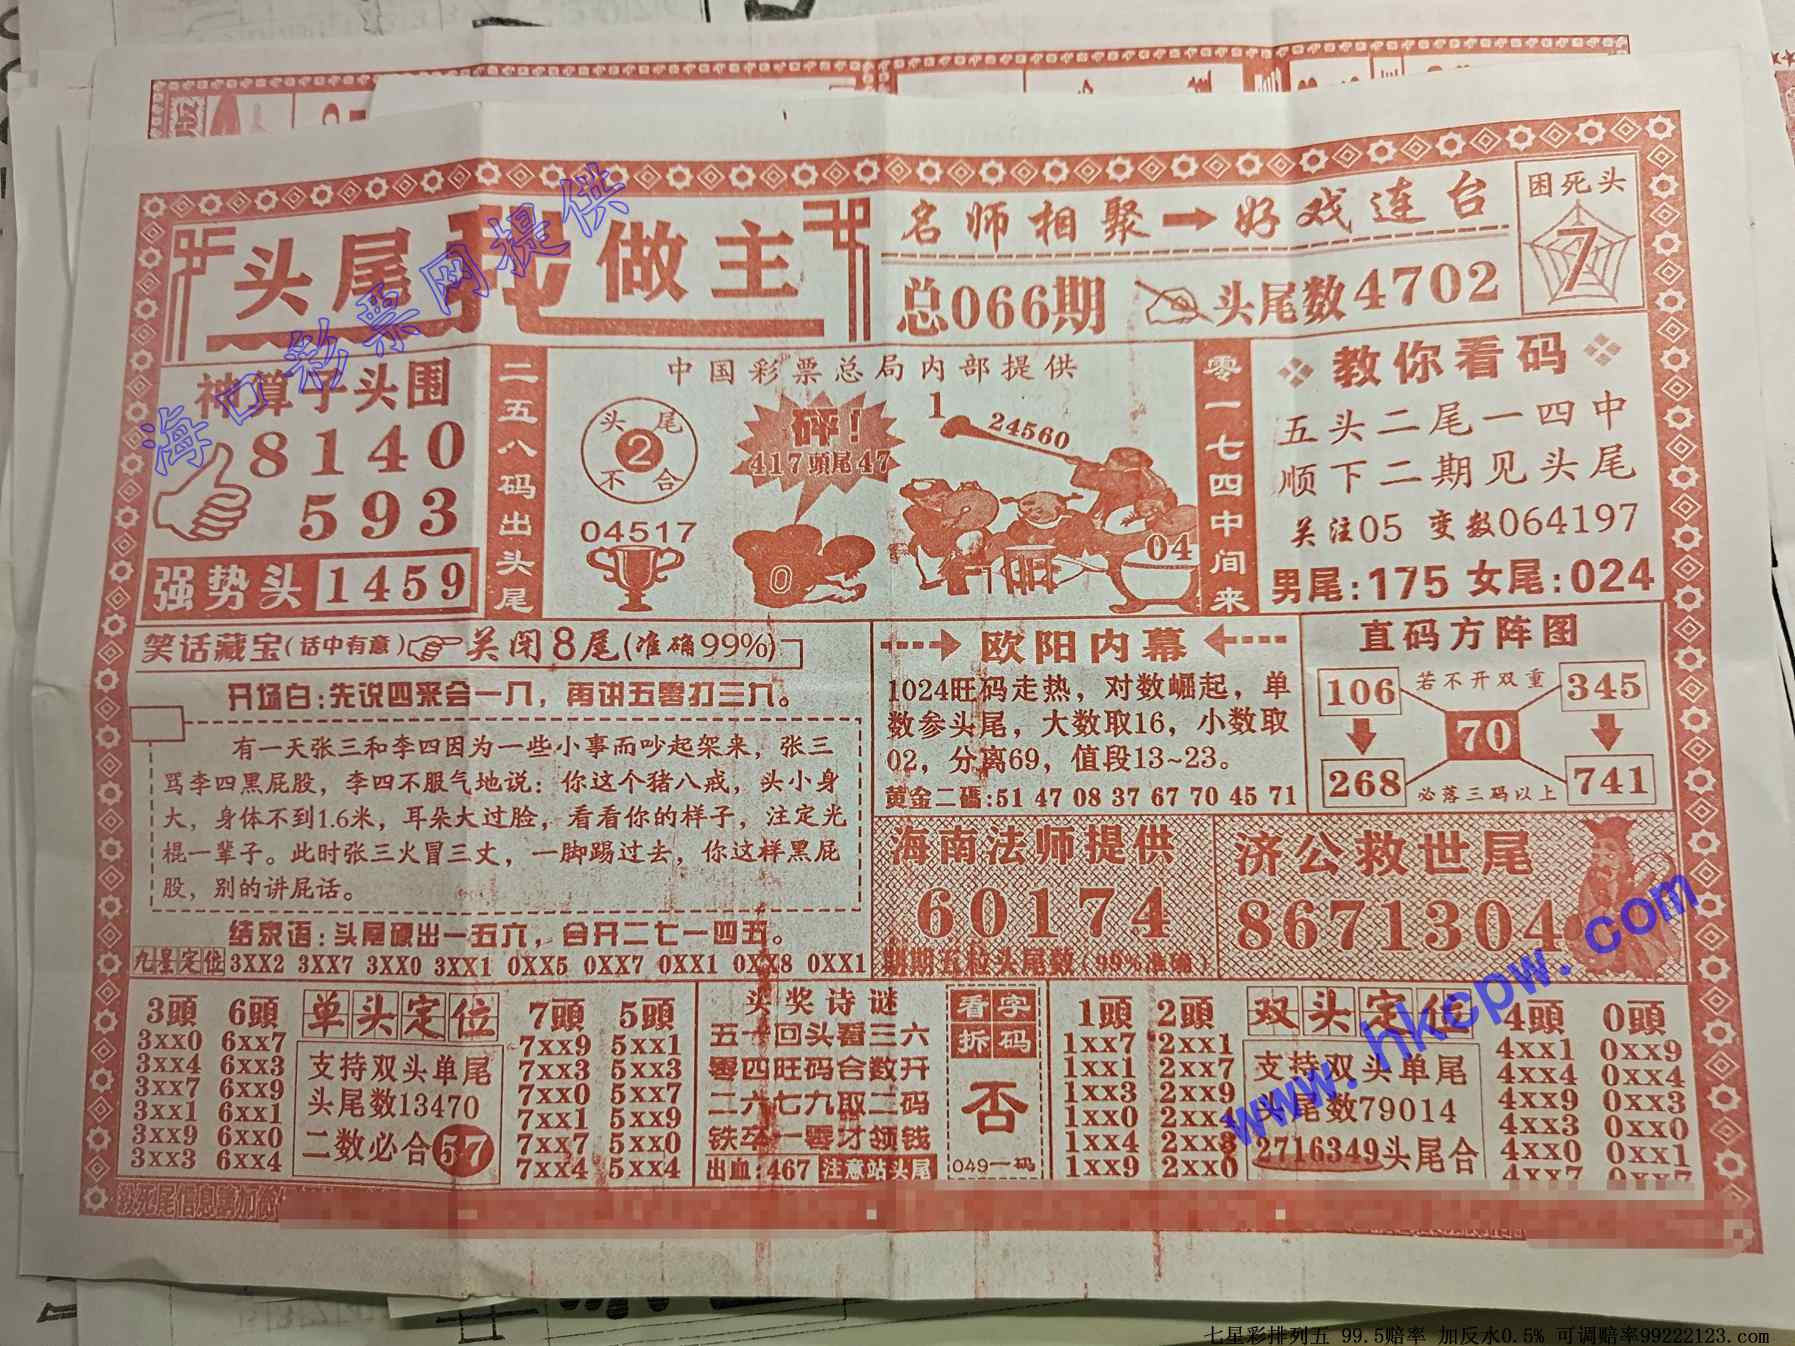 头尾我做主
名师相聚→好戏连台
总066期 头尾数4702
困死头
7
神算子头围
8140
593
强势头 1459
二五八码出头尾
中国彩票总局内部提供
头尾
2
不合
04517
砰!
417頭尾47
0
1
24560
04
零一七四中间来
教你看码
五头二尾一四中
顺下二期见头尾
关注05 变数064197
男尾:175 女尾:024
笑话藏宝(话中有意) 关闭8尾(准确99%)
开场白:先说四来会一八,再讲五零打三九。
有一天张三和李四因为一些小事而吵起架来,张三
骂李四黑屁股,李四不服气地说:你这个猪八戒,头小身
大,身体不到1.6米,耳朵大过脸,看看你的样子,注定光
棍一辈子。此时张三火冒三丈,一脚踢过去,你这样黑屁
股,别的讲屁话。
结束语:头尾硬出一五六,合开二七一四五。
九星定位 3XX2 3XX7 3XX0 3XX1 0XX5 0XX7 0XX1 0XX8 0XX1
欧阳内幕
1024旺码走热,对数崛起,单
数参头尾,大数取16,小数取
02,分离69,值段13~23。
黄金二碼:51 47 08 37 67 70 45 71
直码方阵图
106 若不开双重 345
70
268 必落三码以上 741
海南法师提供
60174
期期五粒头尾数(99%准确)
济公救世尾
8671304
3頭 6頭
3xx0 6xx7
3xx4 6xx3
3xx7 6xx9
3xx1 6xx1
3xx9 6xx0
3xx3 6xx4
单头定位
支持双头单尾
头尾数13470
二数必合57
7頭 5頭
7xx9 5xx1
7xx3 5xx3
7xx0 5xx7
7xx1 5xx9
7xx7 5xx0
7xx4 5xx4
头奖诗谜
五十回头看三六
零四旺码合数开
二六七九取二码
铁卒一零才领钱
出血:467 注意站头尾
看字
拆码
否
049一码
1頭 2頭
1xx7 2xx1
1xx1 2xx7
1xx3 2xx9
1xx0 2xx4
1xx4 2xx3
1xx9 2xx0
双头定位
支持双头单尾
头尾数79014
2716349头尾合
4頭 0頭
4xx1 0xx9
4xx4 0xx4
4xx9 0xx3
4xx3 0xx0
4xx0 0xx1
4xx7 0xx7
海口彩票网提供
www.hkcpw.com
七星彩排列五 99.5赔率 加反水0.5% 可调赔率99222123.com